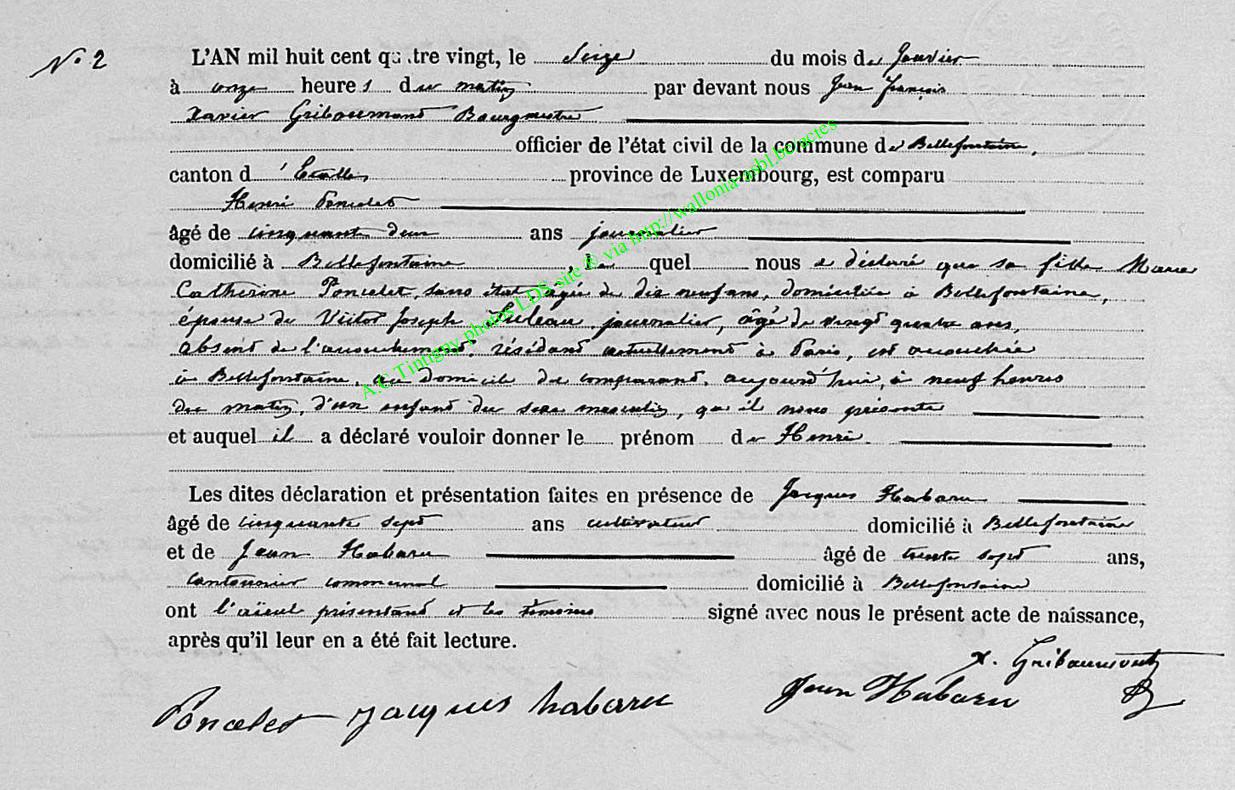 N° 2
L'AN mil huit cent quatre vingt, le Seize du mois de Janvier
à onze heures du matin par devant nous Jean François
Xavier Gribaumont Bourgmestre
officier de l'état civil de la commune de Bellefontaine,
canton d'Etalle, province de Luxembourg, est comparu
Henri Poncelet
âgé de cinquante deux ans journalier
domicilié à Bellefontaine, le quel nous a déclaré que sa fille Marie
Catherine Poncelet, sans état, âgée de dix neuf ans, domiciliée à Bellefontaine,
épouse de Victor Joseph journalier, âgé de vingt quatre ans,
absent de l'accouchement, résidant actuellement à Paris, est accouchée
à Bellefontaine, au domicile du comparant, aujourd'hui, à neuf heures
du matin, d'un enfant du sexe masculin, qu'il nous présente
et auquel il a déclaré vouloir donner le prénom de Henri.
Les dites déclaration et présentation faites en présence de Jacques Habaru
âgé de cinquante sept ans cultivateur domicilié à Bellefontaine
et de Jean Habaru âgé de trente sept ans,
cantonnier communal domicilié à Bellefontaine
ont l'aïeul présentant et les témoins signé avec nous le présent acte de naissance,
après qu'il leur en a été fait lecture.
X. Gribaumont
Poncelet Jacques habaru Jean Habaru
A.C.Tintigny photos LDS site & via http://wallonia-asbl.be/actes